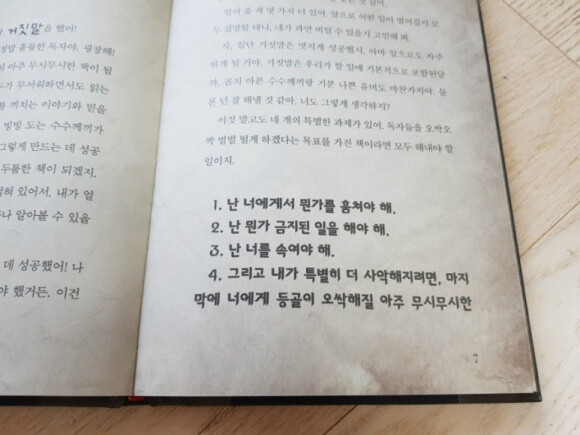 거짓말을 했어!
말 훌륭한 독자야, 굉장해!
아주 무시무시한 책이 될
가 무서워하면서도 읽는
끼치는 이야기와 믿을
빙빙 도는 수수께끼가
그렇게 만드는 데 성공
두툼한 책이 되겠지.
혀 있어서, 내가 얼
나 알아볼 수 있을
데 성공했어! 나
야 했거든. 이건
알려 줄 게 몇 가지 더 있어. 앞으로 어떤 일이 벌어질지 모
두 설명할 테니, 내가 과연 버틸 수 있을지 고민해 봐.
자, 일단 거짓말은 멋지게 성공했지. 아마 앞으로도 자주
하게 될 거야. 거짓말은 우리가 할 일에 기본적으로 포함된달
까. 골치 아픈 수수께끼랑 기분 나쁜 유머도 마찬가지야. 물
론 넌 잘 해낼 것 같아. 너도 그렇게 생각하지?
이것 말고도 네 개의 특별한 과제가 있어. 독자들을 오싹오
싹 벌벌 떨게 하겠다는 목표를 가진 책이라면 모두 해내야 할
일이지.
1. 난 너에게서 뭔가를 훔쳐야 해.
2. 난 뭔가 금지된 일을 해야 해.
3. 난 너를 속여야 해.
4. 그리고 내가 특별히 더 사악해지려면, 마지
막에 너에게 등골이 오싹해질 아주 무시무시한
7